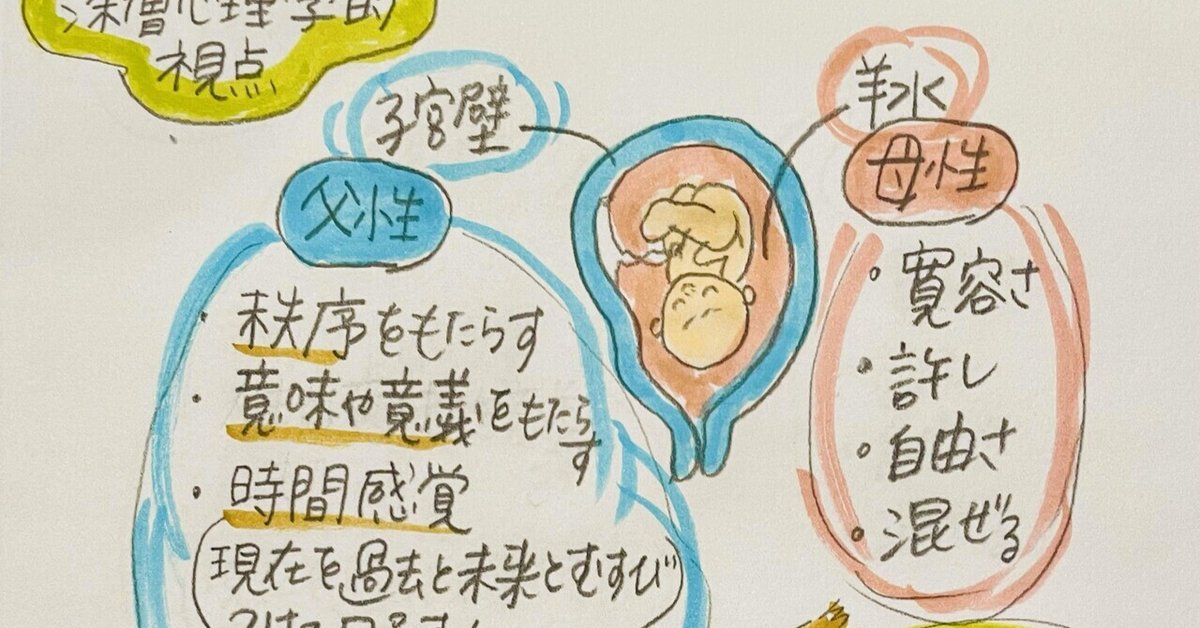 深層心理学的
視点
子宮壁
父性
・秩序をもたらす
・意味や意義をもたらす
・時間感覚
現在を過去と未来とむすび
羊水
母性
・寛容さ
・許し
・自由さ
・混ぜる